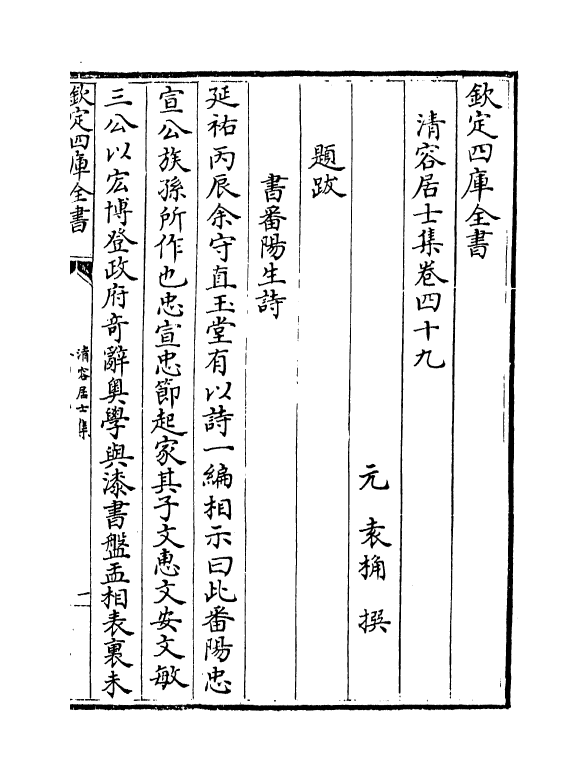 欽定四庫全書
清容居士集卷四十九
元　袁桷　撰
題跋
書番陽生詩
延祐丙辰余守直玉堂有以詩一編相示曰此番陽忠
宣公族孫所作也忠宣忠節起家其子文惠文安文敏
三公以宏博登政府奇辭奥學與漆書盤盂相表裏未
欽定四庫全書
清容居士集
一